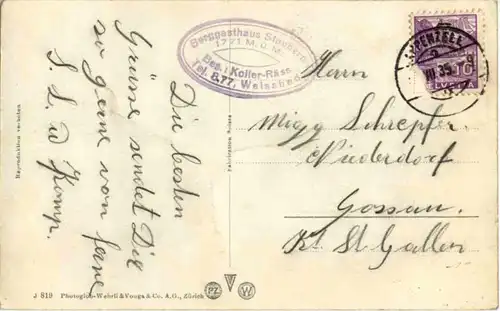 Berggasthaus Staubern
1771 M.ü.M.
Bes. J. Koller-Räss
Tel. 8.77, Weissbad
APPENZELL
VII 35
10
HELVETIA
Herrn
Migg Schrepfer
Niederdorf
Gossau
Kt. St Gallen
Die besten
Grüsse sendet Dir
so gerne von ferne
S. L. u Komp.
Reproduktion verboten
Fabrication Suisse
J 819 Photoglob-Wehrli & Vouga & Co. A.G., Zürich
PZ W